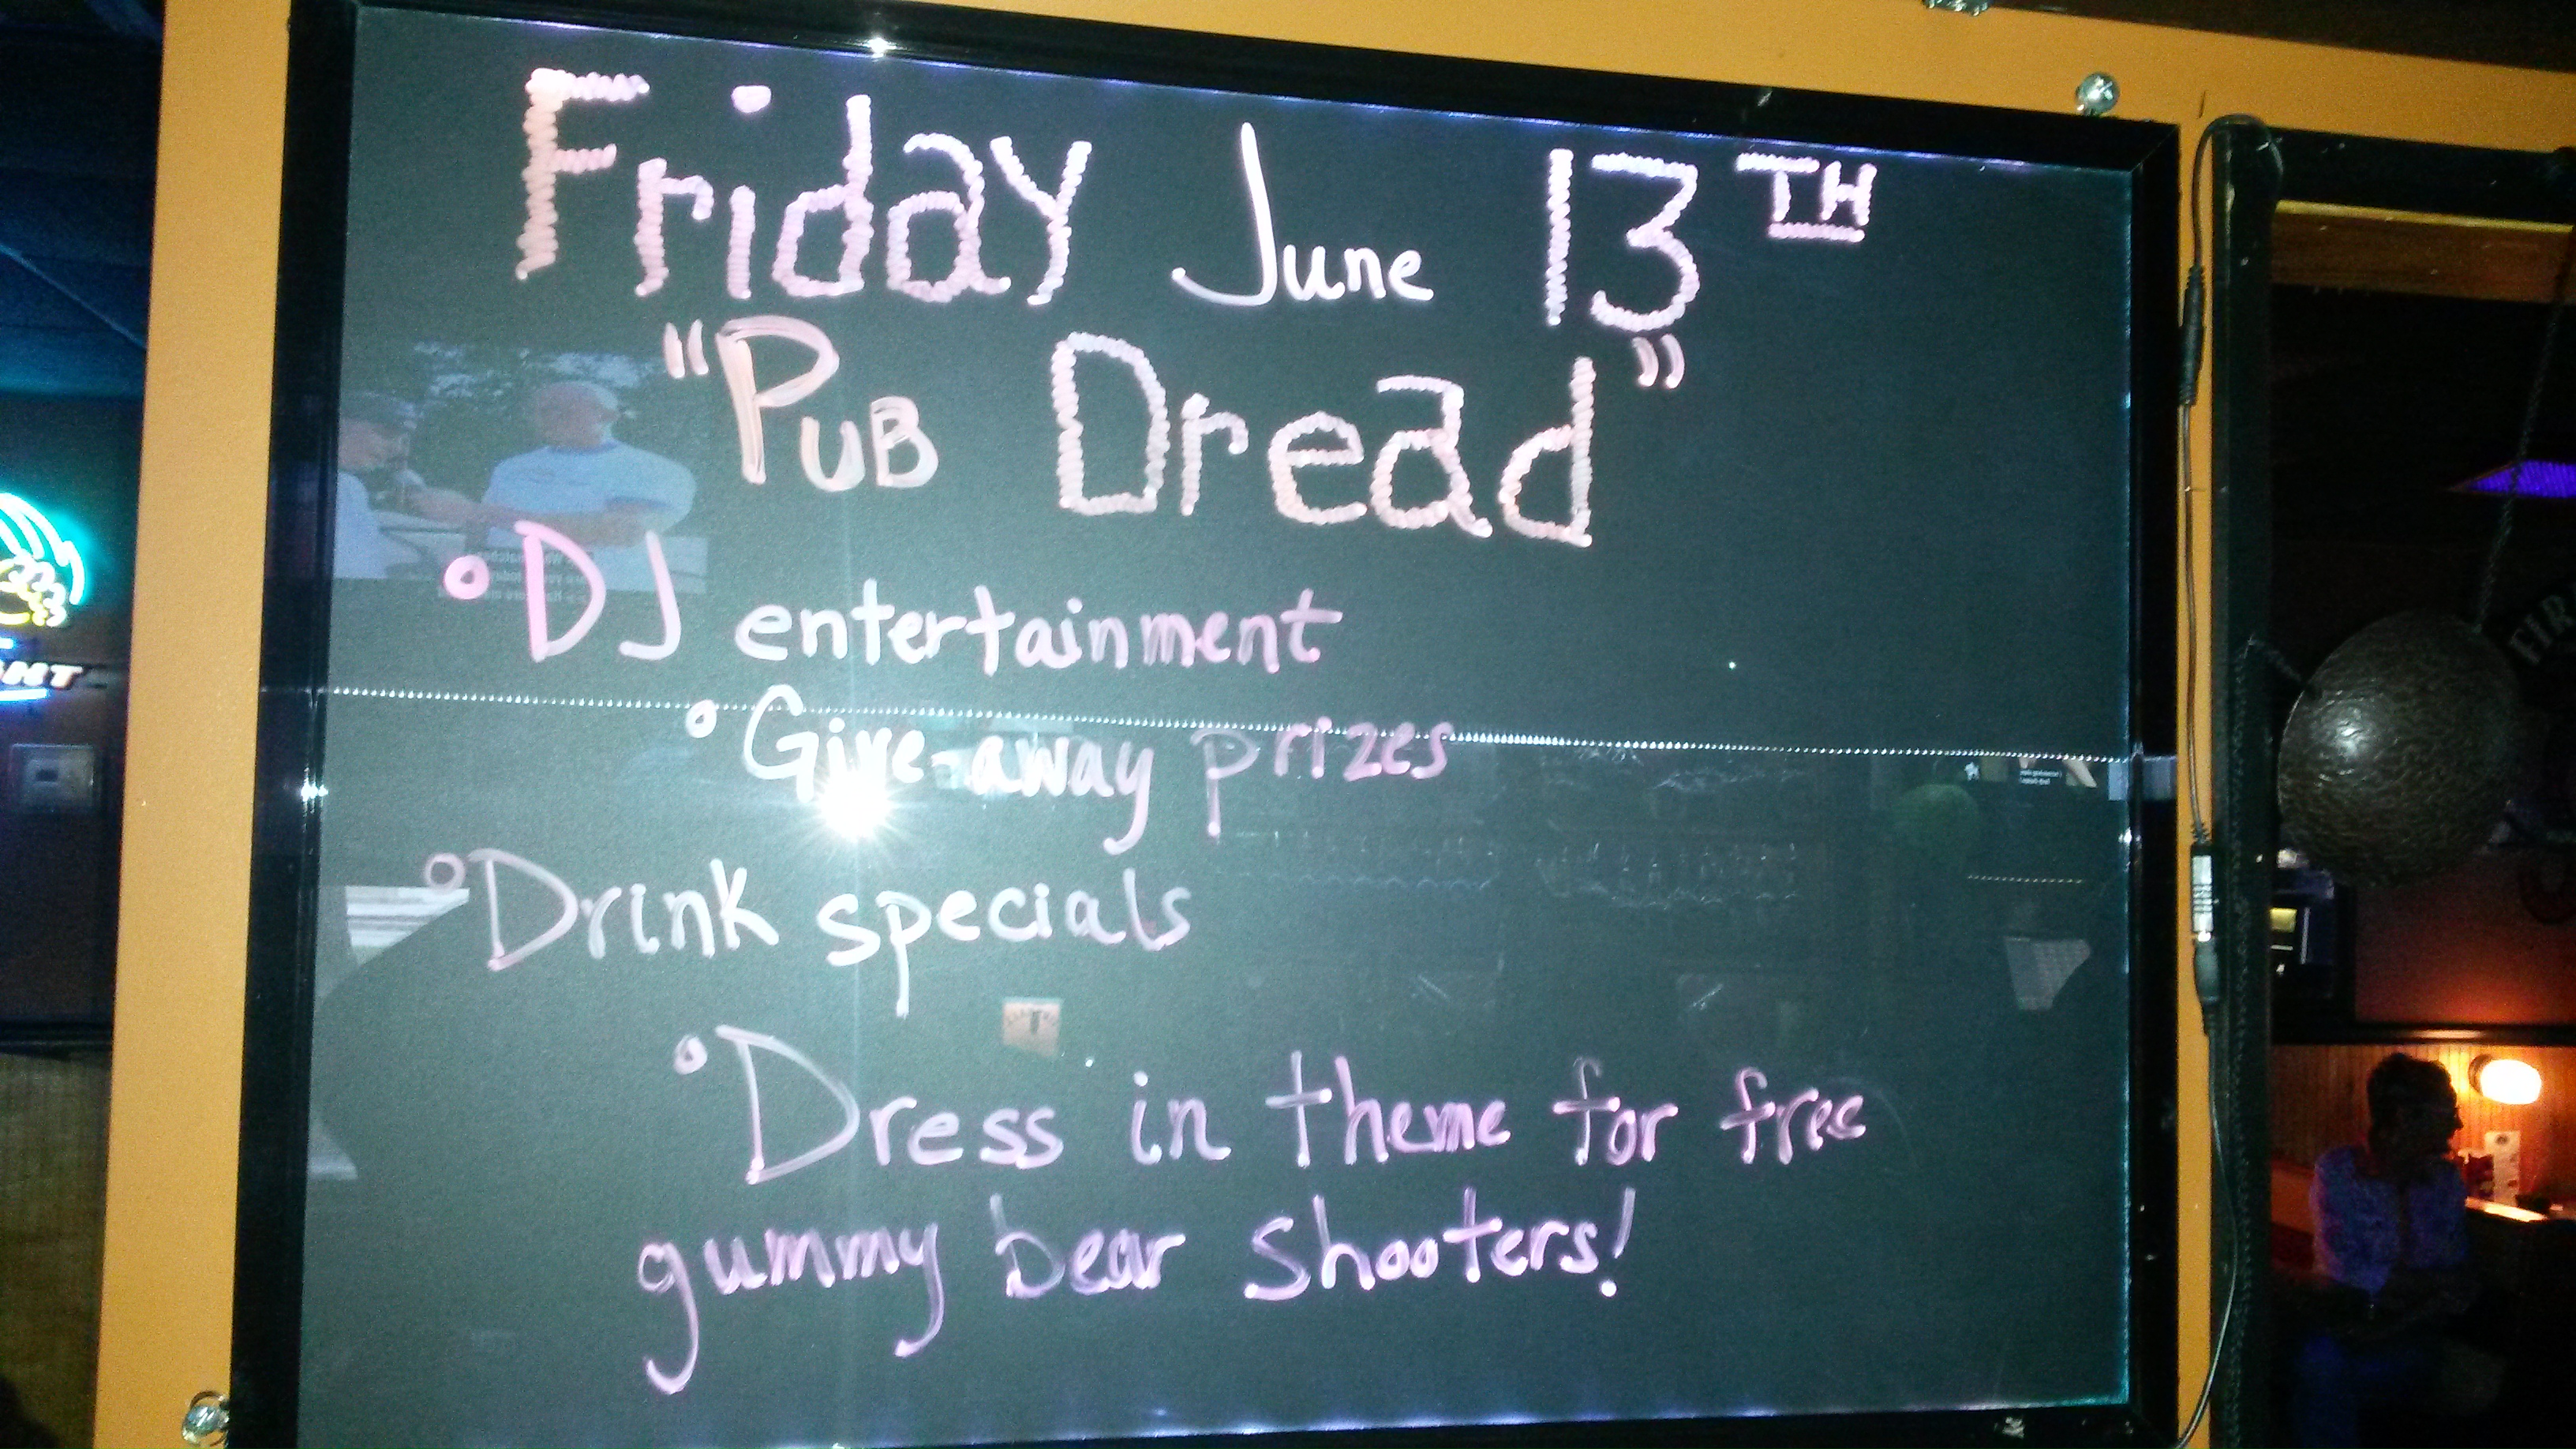 Friday June 13TH
"PUB Dread"
° DJ entertainment
° Give-away prizes
° Drink specials
° Dress in theme for free
gummy bear shooters!